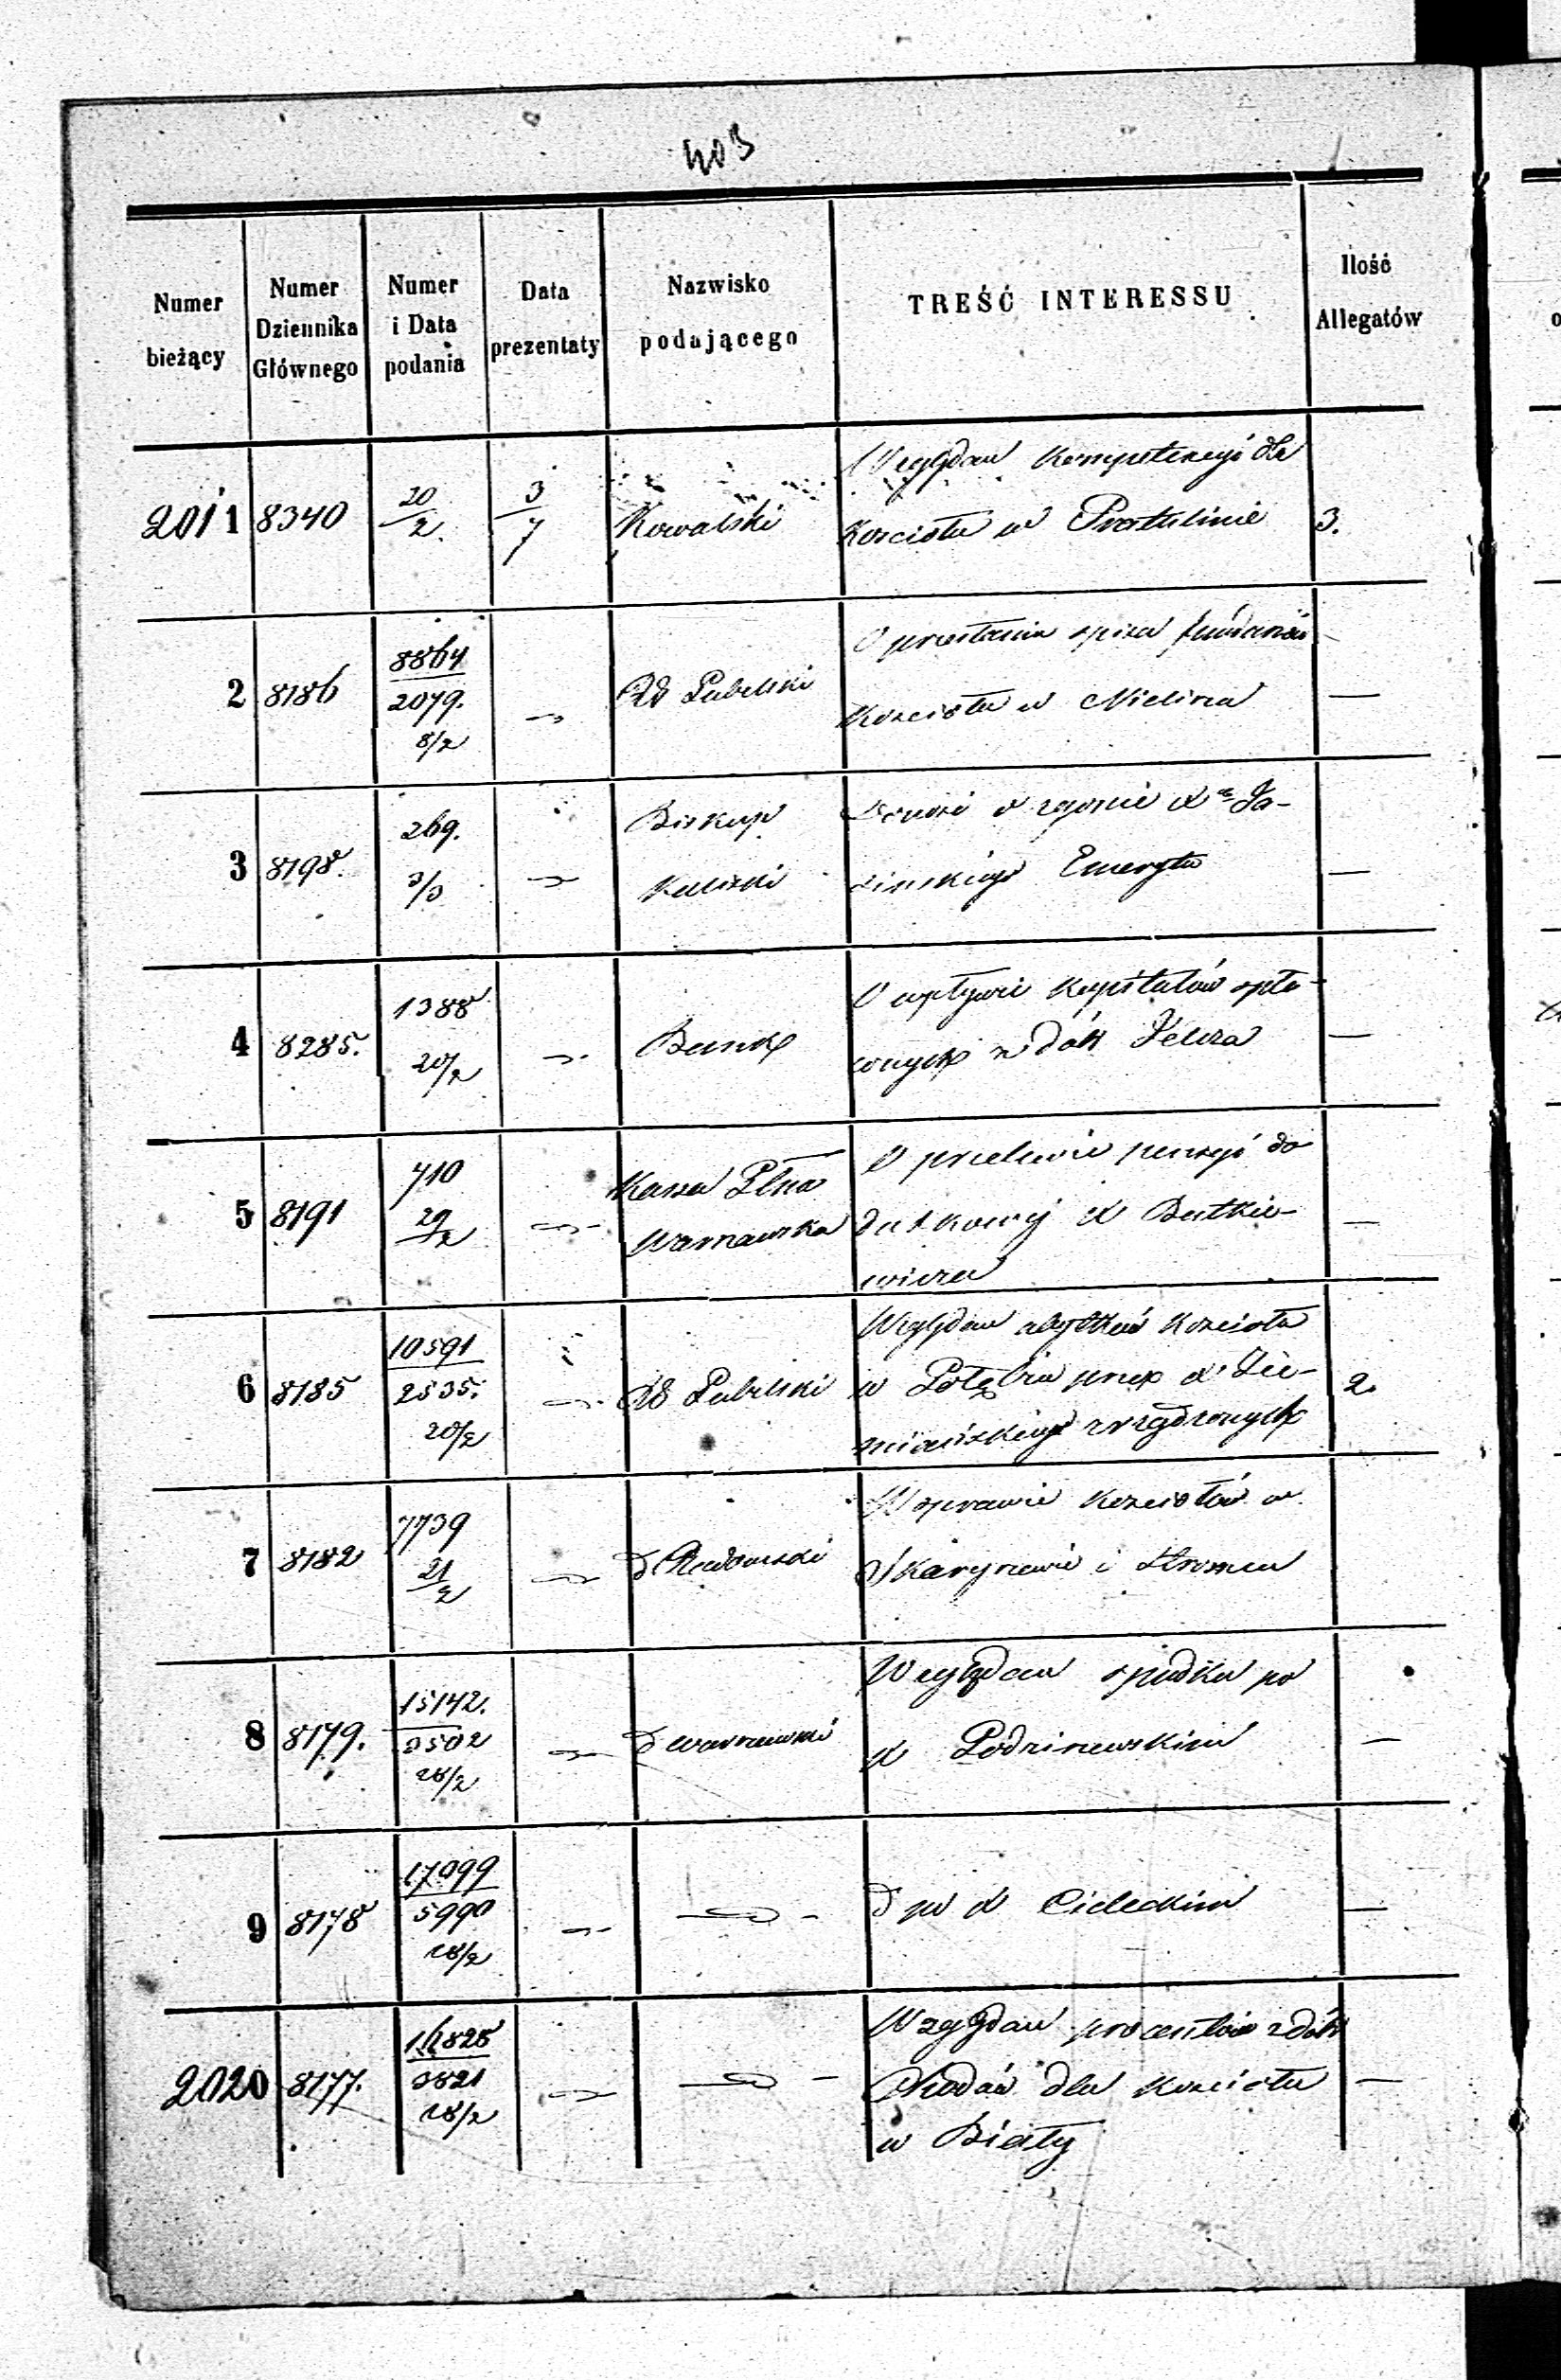 403
Numer bieżący | Numer Dziennika Głównego | Numer i Data podania | Data prezentaty | Nazwisko podającego | TREŚĆ INTERESSU | Ilość Allegatów
2011 | 8340 | 20/2. | 3/7 | Kowalski | Względem kompetencyi dla
Kościoła w Pratulinie | 3.
2 | 8186 | 8864/2079. 8/2 | — | RG Lubelski | O przesłanie spisu funduszów
Kościoła w Mielcza | —
3 | 8198. | 269. 3/3 | — | Biskup Kaliski | Donosi o zgonie X
zińskiego Emeryta | —
4 | 8285. | 1388 20/2 | — | Bank | O wpływie kapitałów spła-
conych z dóbr Żelcza | —
5 | 8191 | 710 29/2 | — | Kassa Głna Warszawska | O przelewie pensyi do
datkowej X Butkie-
wicza | —
6 | 8185 | 10591/2535. 20/2 | — | RG Lubelski | Względem użytków Kościoła
w Gołębiu przez X Zie-
miańskiego zrządzonych | 2.
7 | 8182 | 7739 21/2 | — | d Radomski | W sprawie Kościołów w
Skaryszewie i Stromcu
8 | 8179. | 15142./3502 28/2 | — | d Warszawski | Względem spadku po
X Godziszewskim | —
9 | 8178 | 17099/5990 28/2 | — | — | d po X Cieleckim | —
2020 | 8177. | 16828/3821 28/2 | — | — | Względem procentów z dóbr
dla Kościoła
w Białej | —